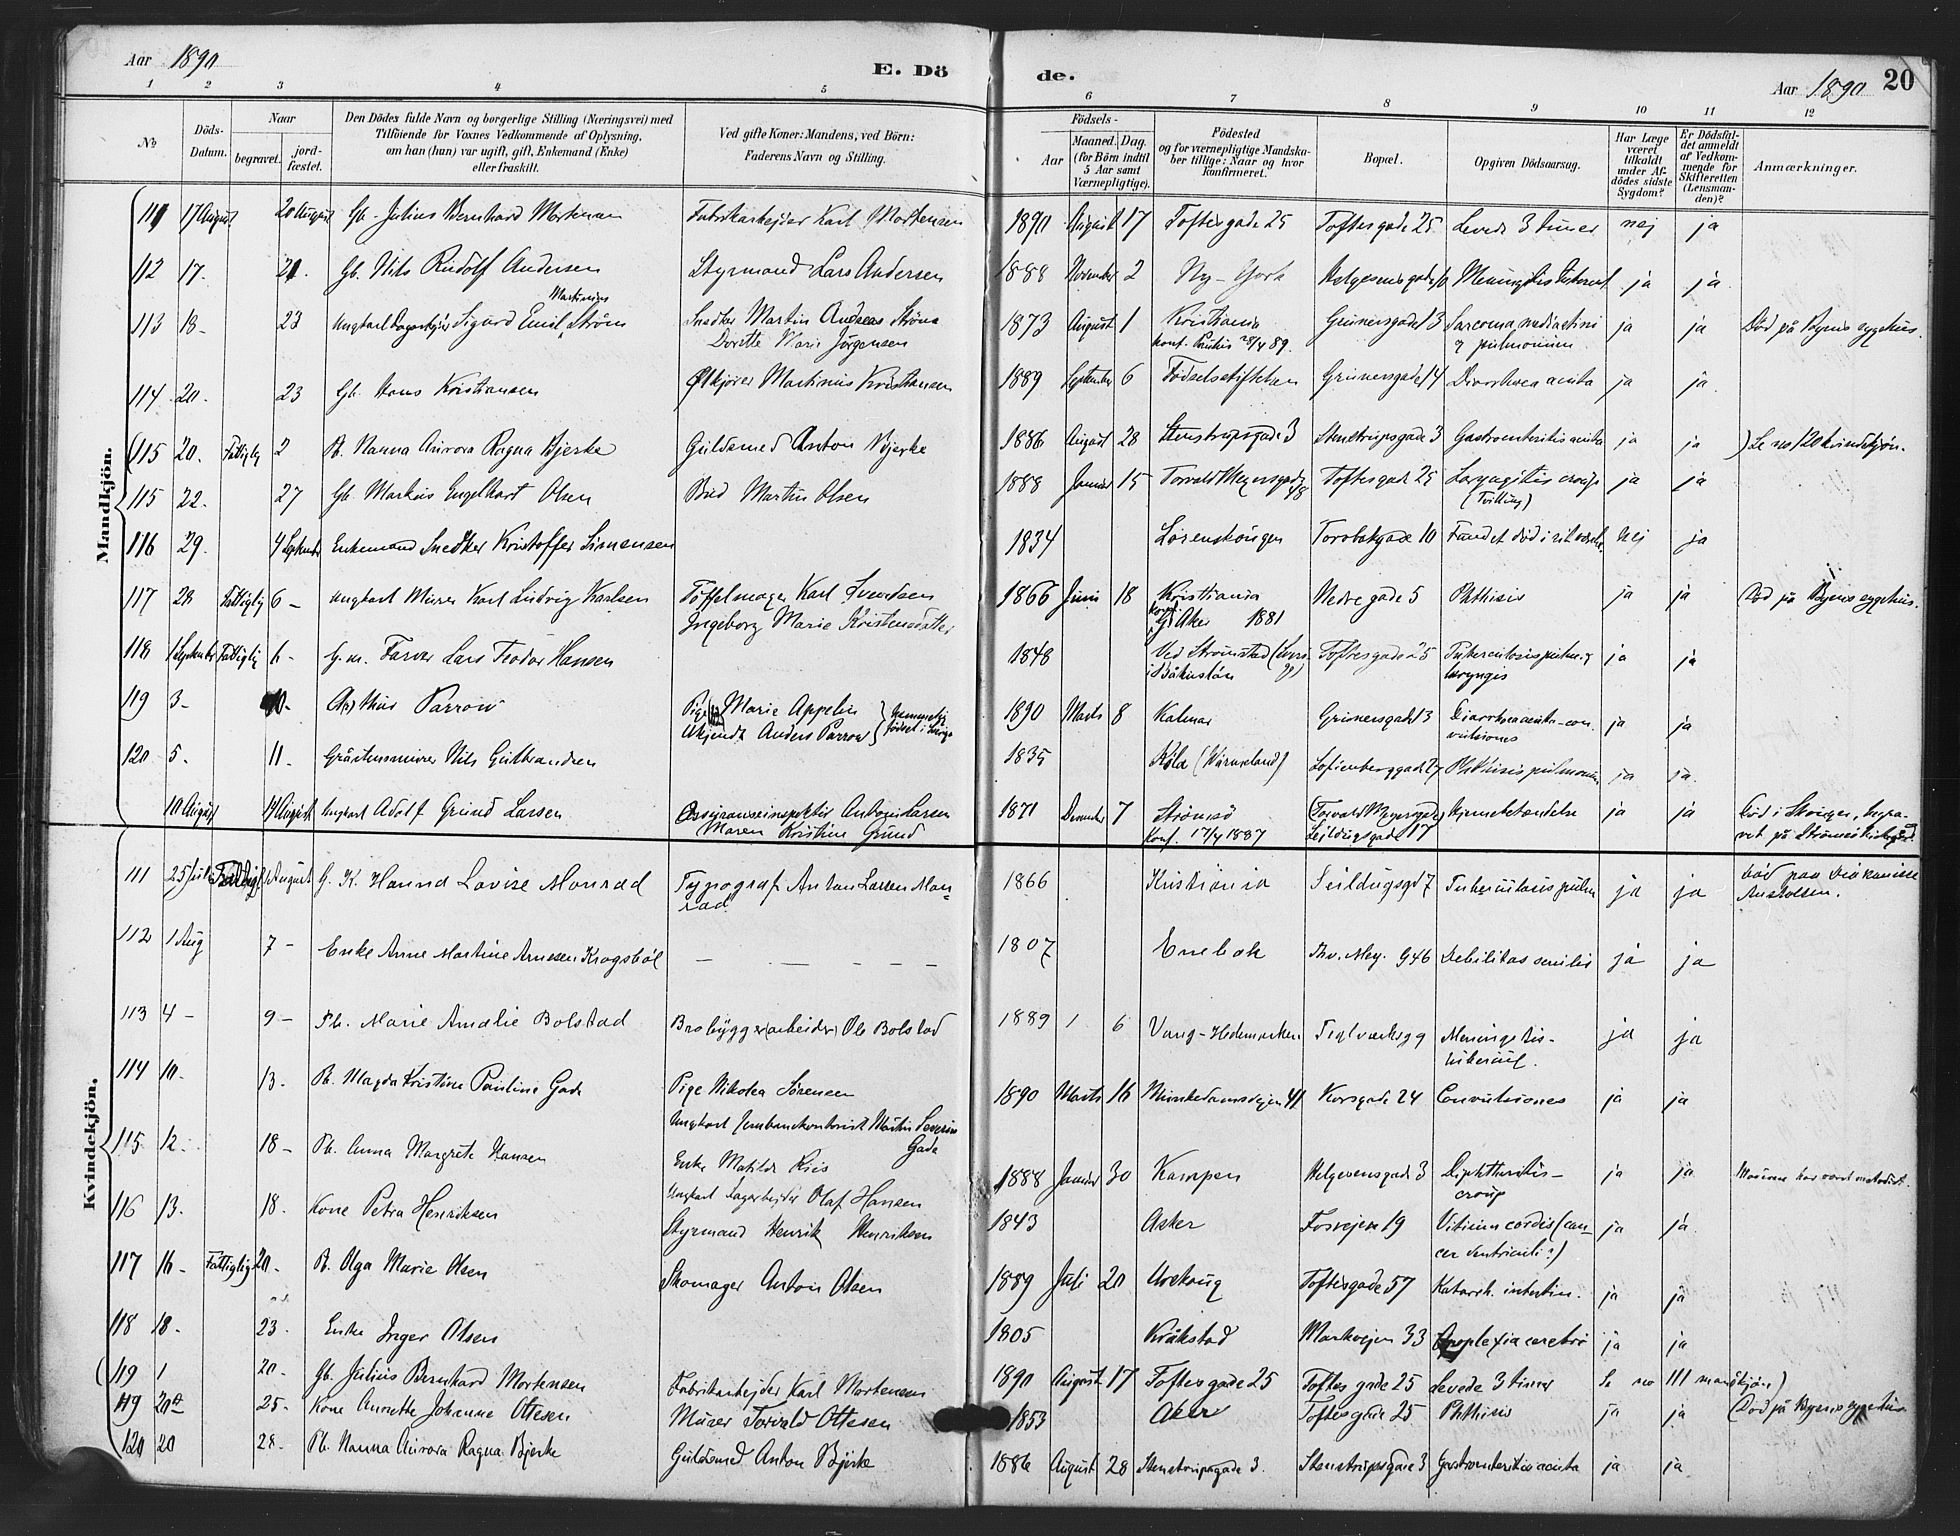 Aar 1890 E. Dö de. Aar 1890 20
1 2 3 4 5 6 7 8 9 10 11 12
No Döds-Datum. Naar begravet. jordfæstet. Den Dödes fulde Navn og borgerlige Stilling (Næringsvei) med Tilföiende for Voxnes Vedkommende af Oplysning, om han (hun) var ugift, gift, Enkemand (Enke) eller fraskilt. Ved gifte Koner: Mandens, ved Börn: Faderens Navn og Stilling. Födsels- Aar Maaned. Dag. (for Börn indtil 5 Aar samt Værnepligtige). Födested og for værnepligtige Mandskaber tillige: Naar og hvor konfirmeret. Bopæl. Opgiven Dödsaarsag. Har Læge været tilkaldt under Afdödes sidste Sygdom? Er Dödsfaldet anmeldt af Vedkommende for Skifteretten (Lensmanden)? Anmærkninger.
Mandkjön.
111 17 August 20 August Gb. Julius Bernhard Mortensen Fabrikarbejder Karl Mortensen 1890 August 17 Toftesgade 25 Toftesgade 25 Levede 3 timer nej ja
112 17. 21. Gb. Nils Rudolf Andersen Styrmand Lars Andersen 1888 November 2 Ny-York Helgesensgade 10 Meningitis tubercul ja ja
Martinius
113 18- 23 Ungkarl Sigurd Emil Ström Snedker Martin Andreas Ström 1873 August 1 Kristiania Grünersgade 13 Sarcoma mediastini ja ja Död på Byens sygehus.
Dorette Marie Jörgensen Konf. Paulus 28/4 89. & pulmonum
114 20. 23 Gb. Hans Kristiansen Ölkjörer Martinius Kristiansen 1889 September 6 Födselsstiftelsen Grünersgade 14 Diarrhoea acuta ja ja.
(115 20. Fattiglig 2 Pb. Nanna Aurora Ragna Bjerke Guldsmed Anton Bjerke 1886 August 28 Stenstrupsgade 3 Stenstrupsgade 3 Gastroenteritis acuta ja ja ) Se no 120 kvindekjön.
115 22. 27 Gb. Markus Engelhart Olsen Bud Martin Olsen 1888 Januar 15 Torvald Meyersgade 48 Toftesgade 25 Laryngitis croup ja ja
(Tvilling)
116 29. 4 September Enkemand Snedker Kristoffer Simensen 1834 Lörenskogen Torvbakgade 10 Fundet död i sit værelse. Nej ja
117 28 Fattiglig 6 - Ungkarl Murer Karl Ludvig Karlsen Töffelmager Karl Svendsen 1866 Juni 18 Kristiania Nedregade 5 Phthisis ja ja Död på Byens sygehus.
Ingeborg Marie Kristensdatter Aker 1881
118 1 September Fattiglig 6- G.m. Farver Lars Teodor Hansen 1848 Ved Strömstad Toftesgade 25 Tuberculosis pulm. & ja ja
laryngis
119 3- 10- Arthur Parrow Pige Marie Appelin 1890 Marts 8 Kalmar Grünersgade 13 Diarrhoea acuta-con- ja ja
Anders Parrow vulsiones
120 5. 11. Gråstensmurer Nils Gulbrandsen 1835 Köla (Wärmeland) Sofienberggade 27 Phthisis pulmonum ja ja.
10 August 14 August Ungkarl Adolf Grund Larsen Larsen 1871 December 7 Strömsö Torvald Meyersgade Hjernebetændelse ja ja Död i Skoger, begra-
Maren Kristine Grund Konf. 17/4 1887 Seildugsgade 17 vet på Strömsö Kirkegård
Kvindekjön.
111 25 Juli Fattiglig August G. K. Hanna Lovise Monrad Typograf Anton Larsen Mon- 1866 Kristiania Seildugsgd 7 Tuberculosis pulm ja ja död paa Diakonisse
rad Anstalten.
112 1 Aug 7 - Enke Anne Martine Arnesen Krogsböl - - - - - 1807 Enebak Thv. Mey. g 46 Debilitas senilis ja ja
113 4 - 9 - Pb. Marie Amalie Bolstad Brobygger (arbeider) Ole Bolstad 1889 1 6 Vang-Hedemarken Teglværksg 9 Meningitis- ja ja
tubercul.
114 10. 13. Pb. Magda Kristine Pauline Gade Pige Nikolea Sörensen 1890 Marts 16 Munkedamsvejen 41 Korsgade 24 Convulsiones ja ja
Ungkarl Jernbanekontorist Martin Severin
Gade
115 12. 18 - Pb. Anna Margrete Hansen Enke Matilde Riis 1888 Januar 30 Kampen Helgesensgade 3 Diphtheritis- ja ja Moderen har været metodist.
Ungkarl Olaf Hansen croup
116 13. 18. Kone Petra Henriksen Styrmand Henrik Henriksen 1843 Asker Fosvejen 19 Vitium cordis (can- ja ja
cer ventriculi?)
117 16 - Fattiglig 20. Pb. Olga Marie Olsen Skomager Anton Olsen 1889 Juli 20 Toftesgade 57 Katarrh. intestin. ja ja
118 18. 23. Enke Inger Olsen 1805 Kråkstad Markvejen 33 Apoplexia cerebri ja ja
(119 1 20. Gb. Julius Bernhard Mortensen Fabrikarbejder Karl Mortensen 1890 August 17 Toftesgade 25 Toftesgade 25 Levede 3 timer Se no 111 mandkjön)
119 20 25. Kone Annette Johanne Ottesen Murer Torvald Ottesen 1853 Aker Toftesgade 25 Phthisis ja ja (Död på Byens sygehus
120 20 28. Pb. Nanna Aurora Ragna Bjerke Guldsmed Anton Bjerke 1886 August 28 Stenstrupsgade 3. Stenstrupsgade 3 Gastroenteritis acuta ja ja